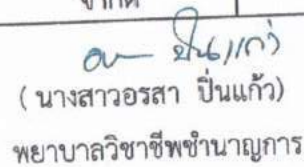 จำกัด
อรสา ปิ่นแก้ว
( นางสาวอรสา ปิ่นแก้ว)
พยาบาลวิชาชีพชำนาญการ